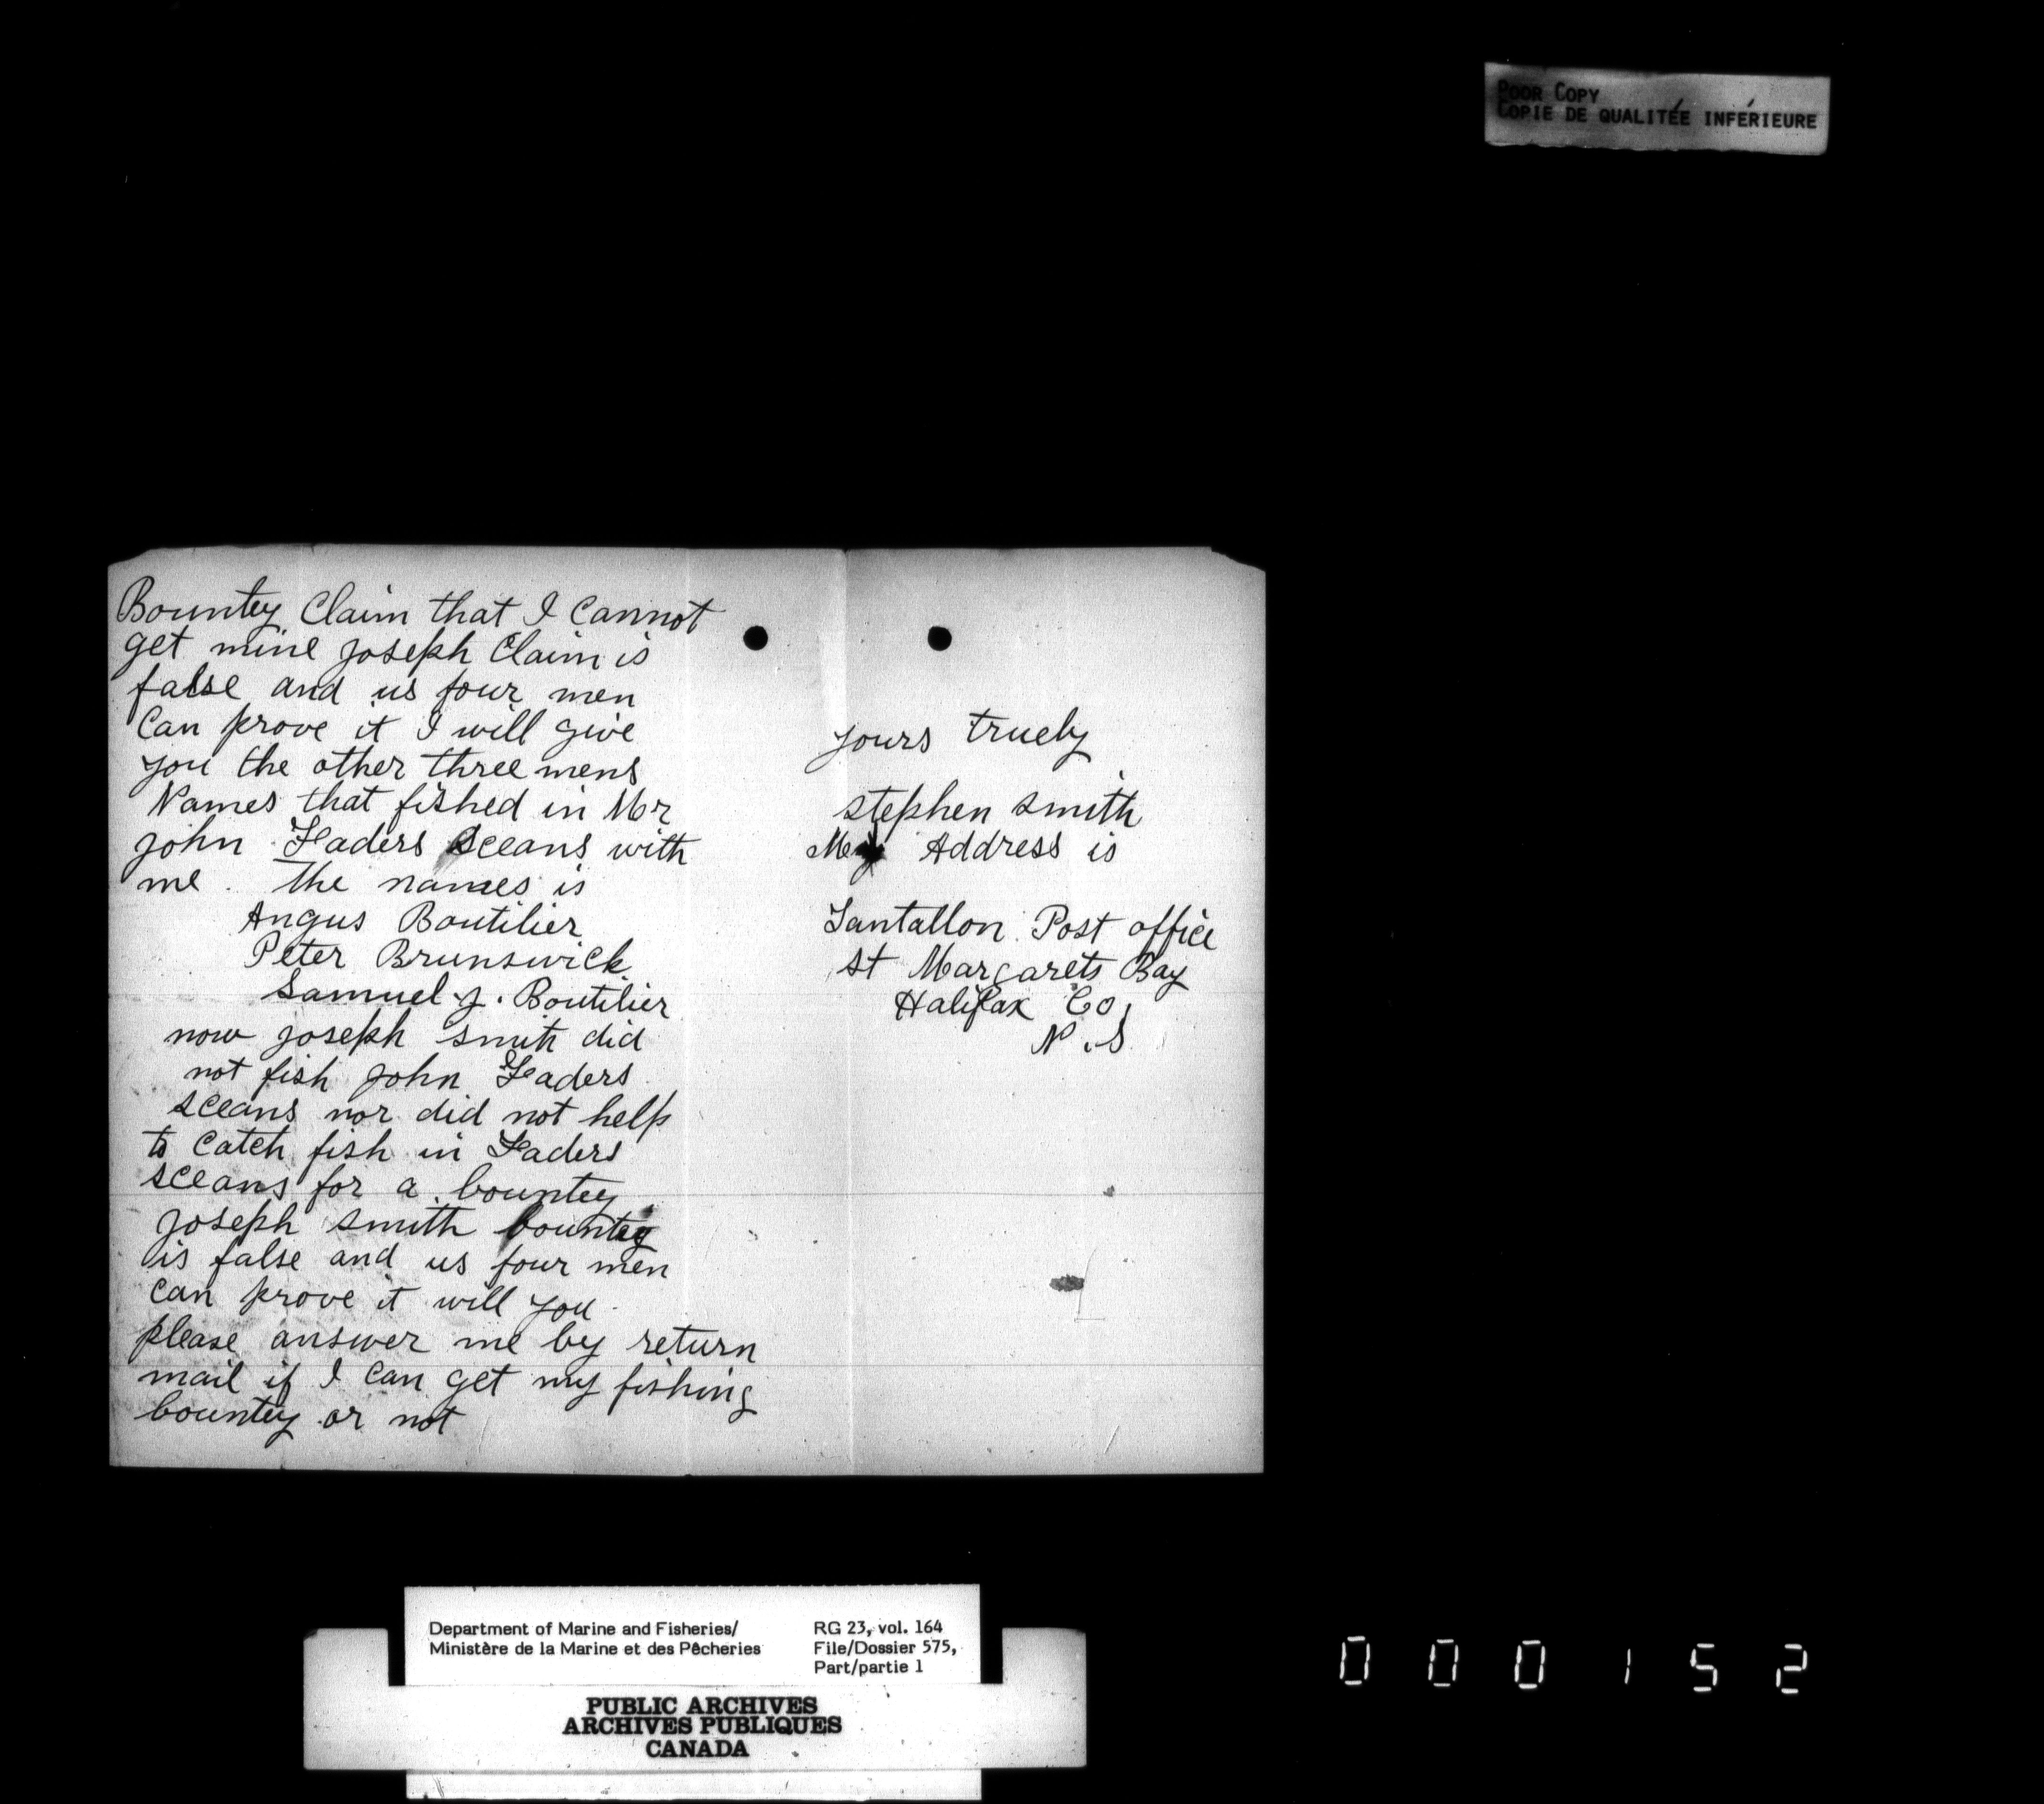 POOR COPY
COPIE DE QUALITÉE INFÉRIEURE
Bountey Claim that I Cannot
get mine joseph Claim is
false and us four men
Can prove it I will give
you the other three mens
Names that fished in Mr
john Faders sceans with
me . The names is
Angus Boutilier
Peter Brunswick
Samuel . J . Boutilier
now joseph smith did
not fish john Faders
sceans nor did not help
to Catch fish in Faders
sceans for a bountey
joseph smith bountey
is false and us four men
Can prove it will you
please answer me by return
mail if I Can get my fishing
bountey or not
yours truely
stephen smith
My Address is
Tantallon Post office
st Margarets Bay
Halifax Co,
N.S
Department of Marine and Fisheries/
Ministère de la Marine et des Pêcheries
RG 23, vol. 164
File/Dossier 575,
Part/partie 1
PUBLIC ARCHIVES
ARCHIVES PUBLIQUES
CANADA
000152